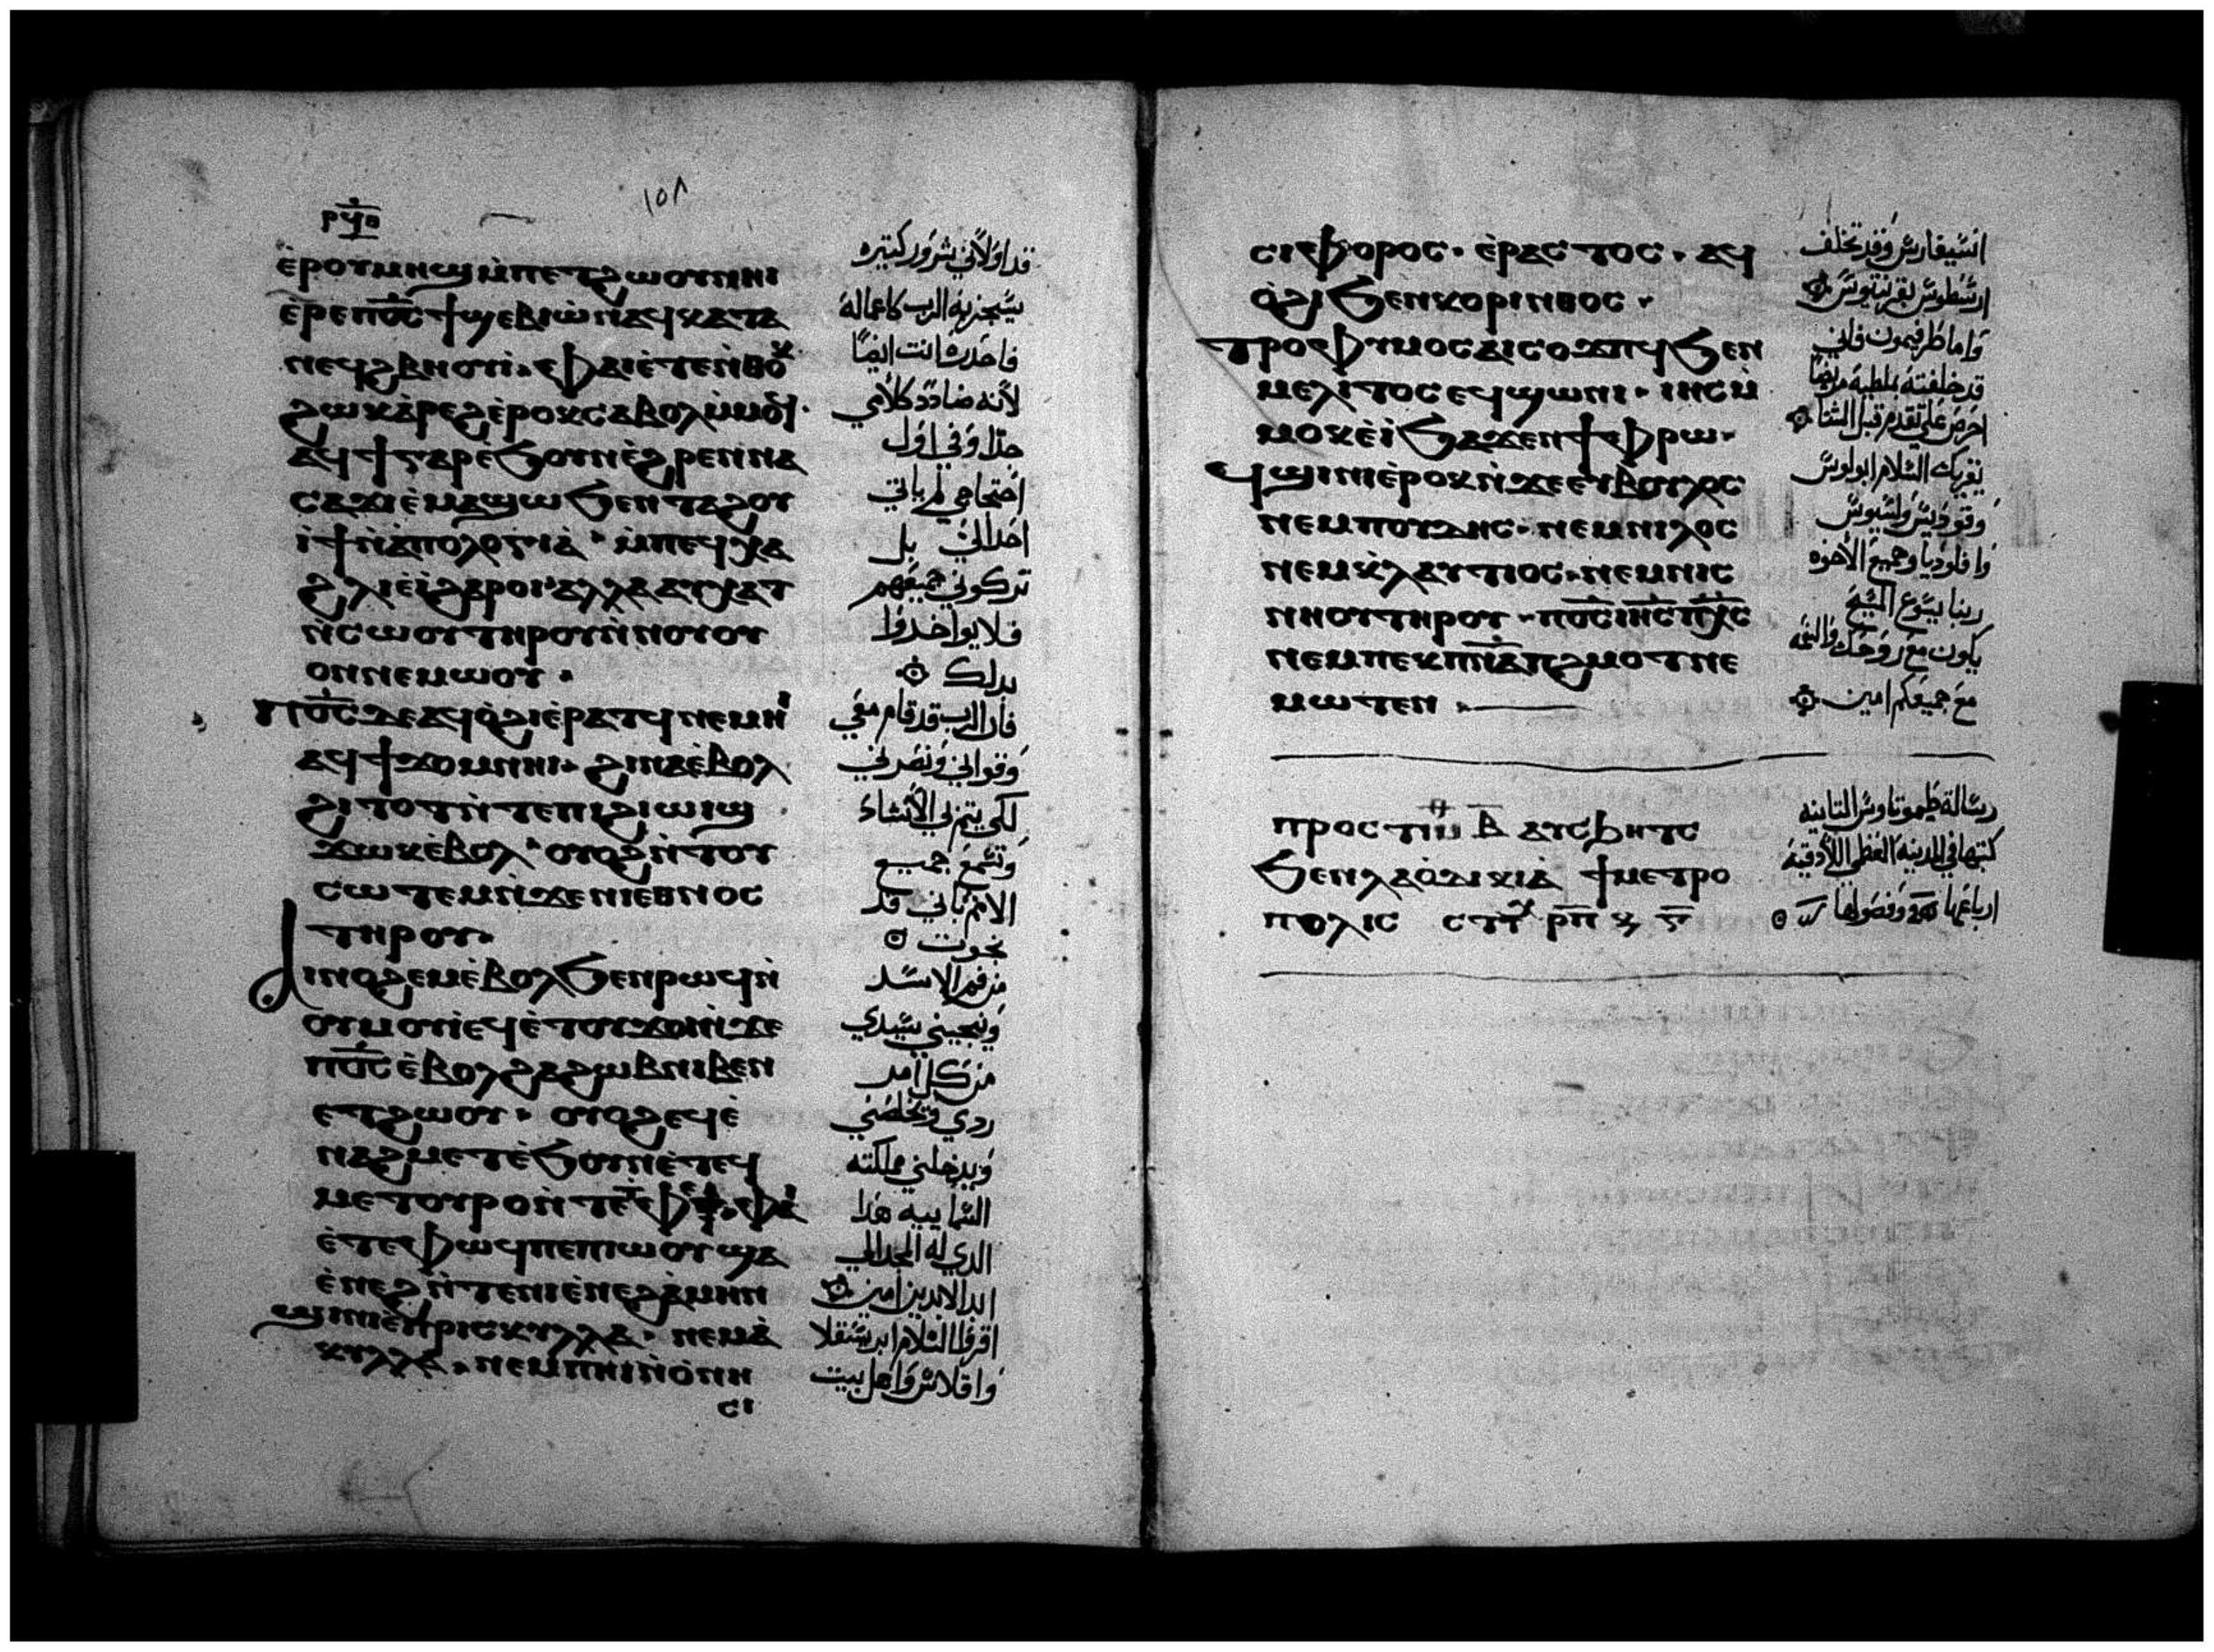 ⲣϥⲑ
١٥٨
ⲉ̀ⲣⲟⲩⲙⲏϣ ⲙ̀ⲡⲉⲧϩⲱⲟⲩ ⲛⲏⲓ
ⲉ̀ⲣⲉ ⲡⲟ̅ⲥ̅ ϯϣⲉⲃⲓⲱ̀ ⲛⲁϥ ⲕⲁⲧⲁ
ⲛⲉϥϩⲃⲏⲟⲩⲓ̀. ⲫⲁⲓ ⲉ̀ⲧⲉ ⲛ̀ⲑⲟⲕ
ϩⲱⲕ ⲁ̀ⲣⲉϩ ⲉ̀ⲣⲟⲕ ⲥⲁⲃⲟⲗ ⲙ̀ⲙⲟϥ.
ⲁϥϯ ⲅⲁⲣ ⲉ̀ϧⲟⲩⲛ ⲉ̀ϩⲣⲉⲛ ⲛⲁ
ⲥⲁϫⲓ ⲉ̀ⲙⲁϣⲱ ϧⲉⲛ ⲧⲁϩⲟⲩ
ⲓ̀ϯ ⲛ̀ⲁ̀ⲡⲟⲗⲟⲅⲓⲁ̀. ⲙ̀ⲡⲉϥⲭⲁ
ϩⲗⲓ ⲉ̀ⲓ̀ ϩⲁⲣⲟⲓ ⲁⲗⲗⲁ ⲁⲩⲭⲁⲧ
ⲛ̀ⲥⲱⲟⲩ ⲧⲏⲣⲟⲩ ⲛ̀ⲛⲟⲩⲟⲩ
ⲟⲡ ⲛⲉⲙⲱⲟⲩ.
ⲡⲟ̅ⲥ̅ ⲇⲉ ⲁϥⲟ̀ϩⲓ ⲉ̀ⲣⲁⲧϥ ⲛⲉⲙⲏⲓ
ⲁϥϯϫⲟⲙ ⲛⲏⲓ. ϩⲓⲛⲁ ⲉ̀ⲃⲟⲗ
ϩⲓⲧⲟⲧ ⲛ̀ⲧⲉ ⲡⲓϩⲓⲱⲓϣ
ϫⲱⲕ ⲉ̀ⲃⲟⲗ. ⲟⲩⲟϩ ⲛ̀ⲧⲟⲩ
ⲥⲱⲧⲉⲙ ⲛ̀ϫⲉ ⲛⲓⲉⲑⲛⲟⲥ
ⲧⲏⲣⲟⲩ.
ⲁⲓⲛⲟϩⲉⲙ ⲉ̀ⲃⲟⲗ ϧⲉⲛ ⲣⲱϥ ⲛ̀
ⲟⲩⲙⲟⲩⲓ̀ ⲉϥⲉ̀ⲧⲟⲩϫⲟⲓ ⲛ̀ϫⲉ
ⲡⲟ̅ⲥ̅ ⲉ̀ⲃⲟⲗ ϩⲁ ϩⲱⲃ ⲛⲓⲃⲉⲛ
ⲉⲧϩⲱⲟⲩ. ⲟⲩⲟϩ ⲉϥⲉ̀
ⲛⲁϩⲙⲉⲧ ⲉ̀ϧⲟⲩⲛ ⲉ̀ⲧⲉϥ
ⲙⲉⲧⲟⲩⲣⲟ ⲛ̀ⲧⲉ ⲧⲫⲉ. ⲫⲁⲓ
ⲉ̀ⲧⲉ ⲫⲱϥ ⲡⲉ ⲡⲓⲱⲟⲩ ϣⲁ
ⲉ̀ⲛⲉϩ ⲛ̀ⲧⲉ ⲛⲓⲉ̀ⲛⲉϩ ⲁ̀ⲙⲏⲛ
ϣⲓⲛⲓ ⲉ̀ⲡⲣⲓⲥⲕⲩⲗⲗⲁ. ⲛⲉⲙ ⲁ̀
ⲕⲩⲗⲗⲁ. ⲛⲉⲙ ⲡⲏⲓ ⲛ̀ⲟ̀ⲛⲏ
ⲥⲓ
قد اولاني شرور كتيره
سيجزيه الرب كاعماله
فاحدره انت ايضًا
لانه ضادد كلامي
جدًا وفي اول
احتجاجي لم ياتي
احدالي بل
تركوني جميعهم
فلا يواخدوا
بدلك
فان الرب قد قام معي
وقواني ونصرني
لكي يتم لي الانشاء
وتسمع جميع
الامم باني قد
نجوت
من فم الاسد
وينجيني سيدي
من كل امر
ردي ويخلصني
ويدخلني مملكته
السماييه هدا
الدي له المجد الي
ابد الابدين امين
اقرا السلام ابرسقلا
واقلاس واهل بيت
ⲥⲓⲫⲟⲣⲟⲥ. ⲉ̀ⲣⲁⲥⲧⲟⲥ. ⲁϥ
ⲟ̀ϩⲓ ϧⲉⲛ ⲕⲟⲣⲓⲛⲑⲟⲥ.
ⲧⲣⲟⲫⲩⲙⲟⲥ ⲁⲓⲥⲟϫⲡϥ ϧⲉⲛ
ⲙⲉⲗⲓⲧⲟⲥ ⲉϥϣⲱⲛⲓ. ⲓⲏⲥ ⲙ̀
ⲙⲟⲕ ⲉ̀ⲓ̀ ϧⲁϫⲉⲛ ϯⲫⲣⲱ.
ϥϣⲓⲛⲓ ⲉ̀ⲣⲟⲕ ⲛ̀ϫⲉ ⲉⲩⲃⲟⲩⲗⲟⲥ
ⲛⲉⲙ ⲡⲟⲩⲇⲏⲥ. ⲛⲉⲙ ⲛⲓⲗⲟⲥ
ⲛⲉⲙ ⲕⲗⲁⲩⲧⲓⲟⲥ. ⲛⲉⲙ ⲛⲓⲥ
ⲛⲏⲟⲩ ⲧⲏⲣⲟⲩ. ⲡⲟ̅ⲥ̅ ⲓⲏ̅ⲥ̅ ⲡⲭ̅ⲥ̅
ⲛⲉⲙ ⲡⲉⲕⲡⲛ̅ⲁ̅ ⲡϩⲙⲟⲧ ⲛⲉ
ⲙⲱⲧⲉⲛ.
انسيفارس وقد تخلف
ارسطوس بقرنتيوس
واما طرفيمون فاني
قد خلفته بملطية مريضًا
احرص علي تقدم قبل الشتا
يقريك السلام ابولوس
وفوديس ولينوس
وافلوديا وجميع الاخوه
ربنا يسوع المسيح
يكون مع روحك والنعمه
مع جميعكم امين
ⲡⲣⲟⲥ ⲧⲓⲙ ⲃ̅ ⲁⲩⲥϧⲏⲧⲥ
ϧⲉⲛ ⲗⲁⲟ̀ⲇⲓⲕⲓⲁ̀ ϯⲙⲉⲧⲣⲟ
ⲡⲟⲗⲓⲥ ⲥⲧⲭ ⲣⲡ
رسالة طيموتاوس التانيه
كتبها في المدينه العظمى اللادقيه
ارباعها وفصولها